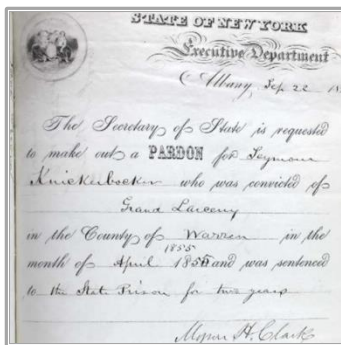 STATE OF NEW YORK
Executive Department
Albany, Sep. 22 18
The Secretary of State is requested
to make out a PARDON for Seymour
Knickerbocker who was convicted of
Grand Larceny
in the County of Warren in the
1855
month of April 185 and was sentenced
to the State Prison for two years
Myron H. Clark